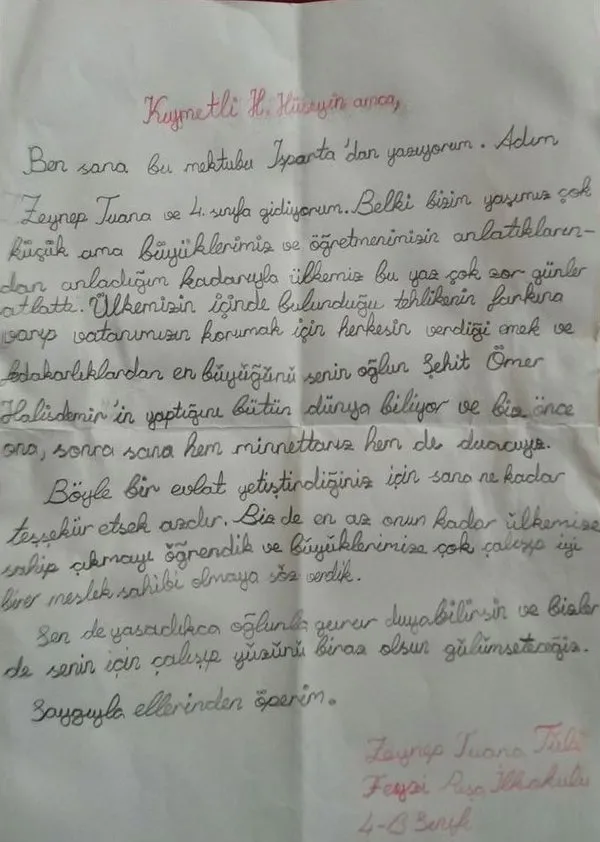 Kıymetli H. Hüseyin amca,
Ben sana bu mektubu Isparta'dan yazıyorum. Adım
Zeynep Tuana ve 4. sınıfa gidiyorum. Belki bizim yaşımız çok
küçük ama büyüklerimiz ve öğretmenimizin anlatıkların-
dan anladığım kadarıyla ülkemiz bu yaz çok zor günler
atlattı. Ülkemizin içinde bulunduğu tehlikenin farkına
varıp vatanımızın korumak için herkesin verdiği emek ve
fedakarlıklardan en büyüğünü senin oğlun Şehit Ömer
Halisdemir'in yaptığını bütün dünya biliyor ve biz önce
ona, sonra sana hem minnettarız hem de duacıyız.
Böyle bir evlat yetiştirdiğiniz için sana ne kadar
teşşekür etsek azdır. Biz de en az onun kadar ülkemize
sahip çıkmayı öğrendik ve büyüklerimize çok çalışıp iyi
birer meslek sahibi olmaya söz verdik.
Sen de yaşadıkca oğlunla gurur duyabilirsin ve bizler
de senin için çalışıp yüzünü biraz olsun gülümseteceğiz.
Saygıyla ellerinden öperim.
Zeynep Tuana
Feyzi Paşa İlkokulu
4-B Sınıfı